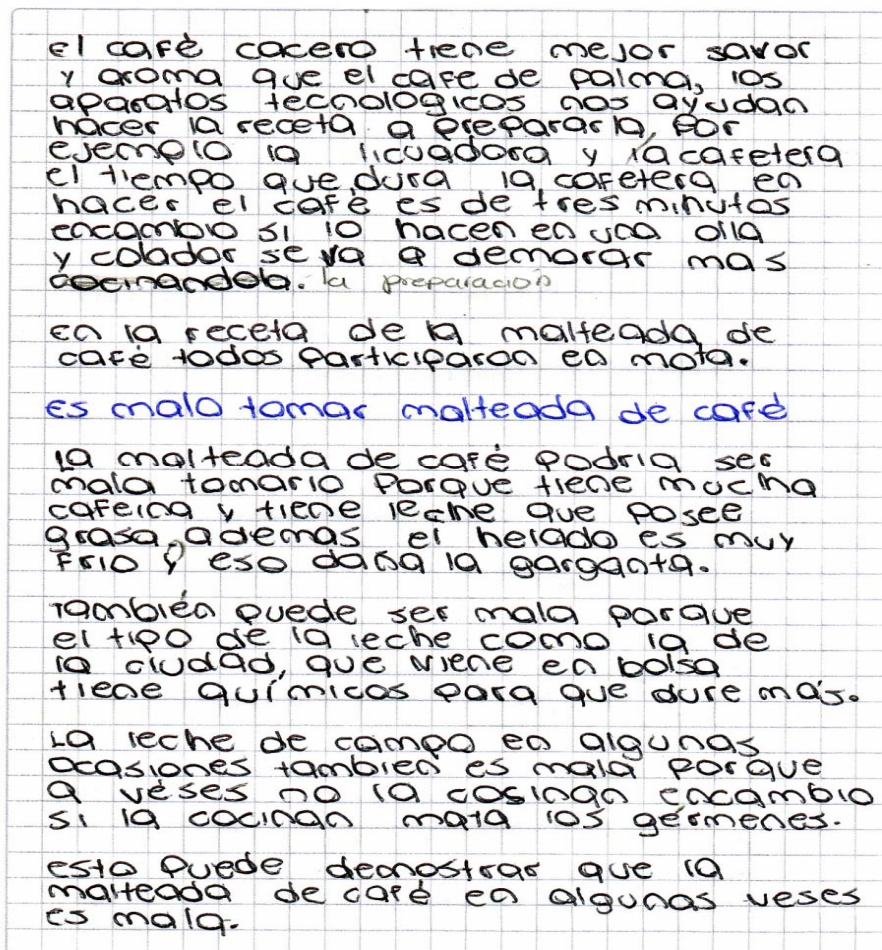 el café cacero tiene mejor savor
y aroma que el cafe de palma, los
aparatos tecnologicos nos ayudan
hacer la receta a prepararla, por
ejemplo la licuadora y la cafetera
el tiempo que dura la cafetera en
hacer el café es de tres minutos
encambio si lo hacen en una olla
y colador se va a demorar mas
cocinandola. la preparación
en la receta de la malteada de
café todos participaron en mota.
es malo tomar malteada de café
la malteada de café podria ser
mala tomarlo porque tiene mucha
cafeina y tiene leche que posee
grasa, ademas el helado es muy
frio y eso daña la garganta.
también puede ser mala porque
el tipo de la leche como la de
la ciudad, que viene en bolsa
tiene químicos para que dure más.
La leche de campo en algunas
ocasiones tambien es mala porque
a veses no la cosinan encambio
si la cocinan mata los gérmenes.
esto puede demostrar que la
malteada de café en algunas veses
es mala.